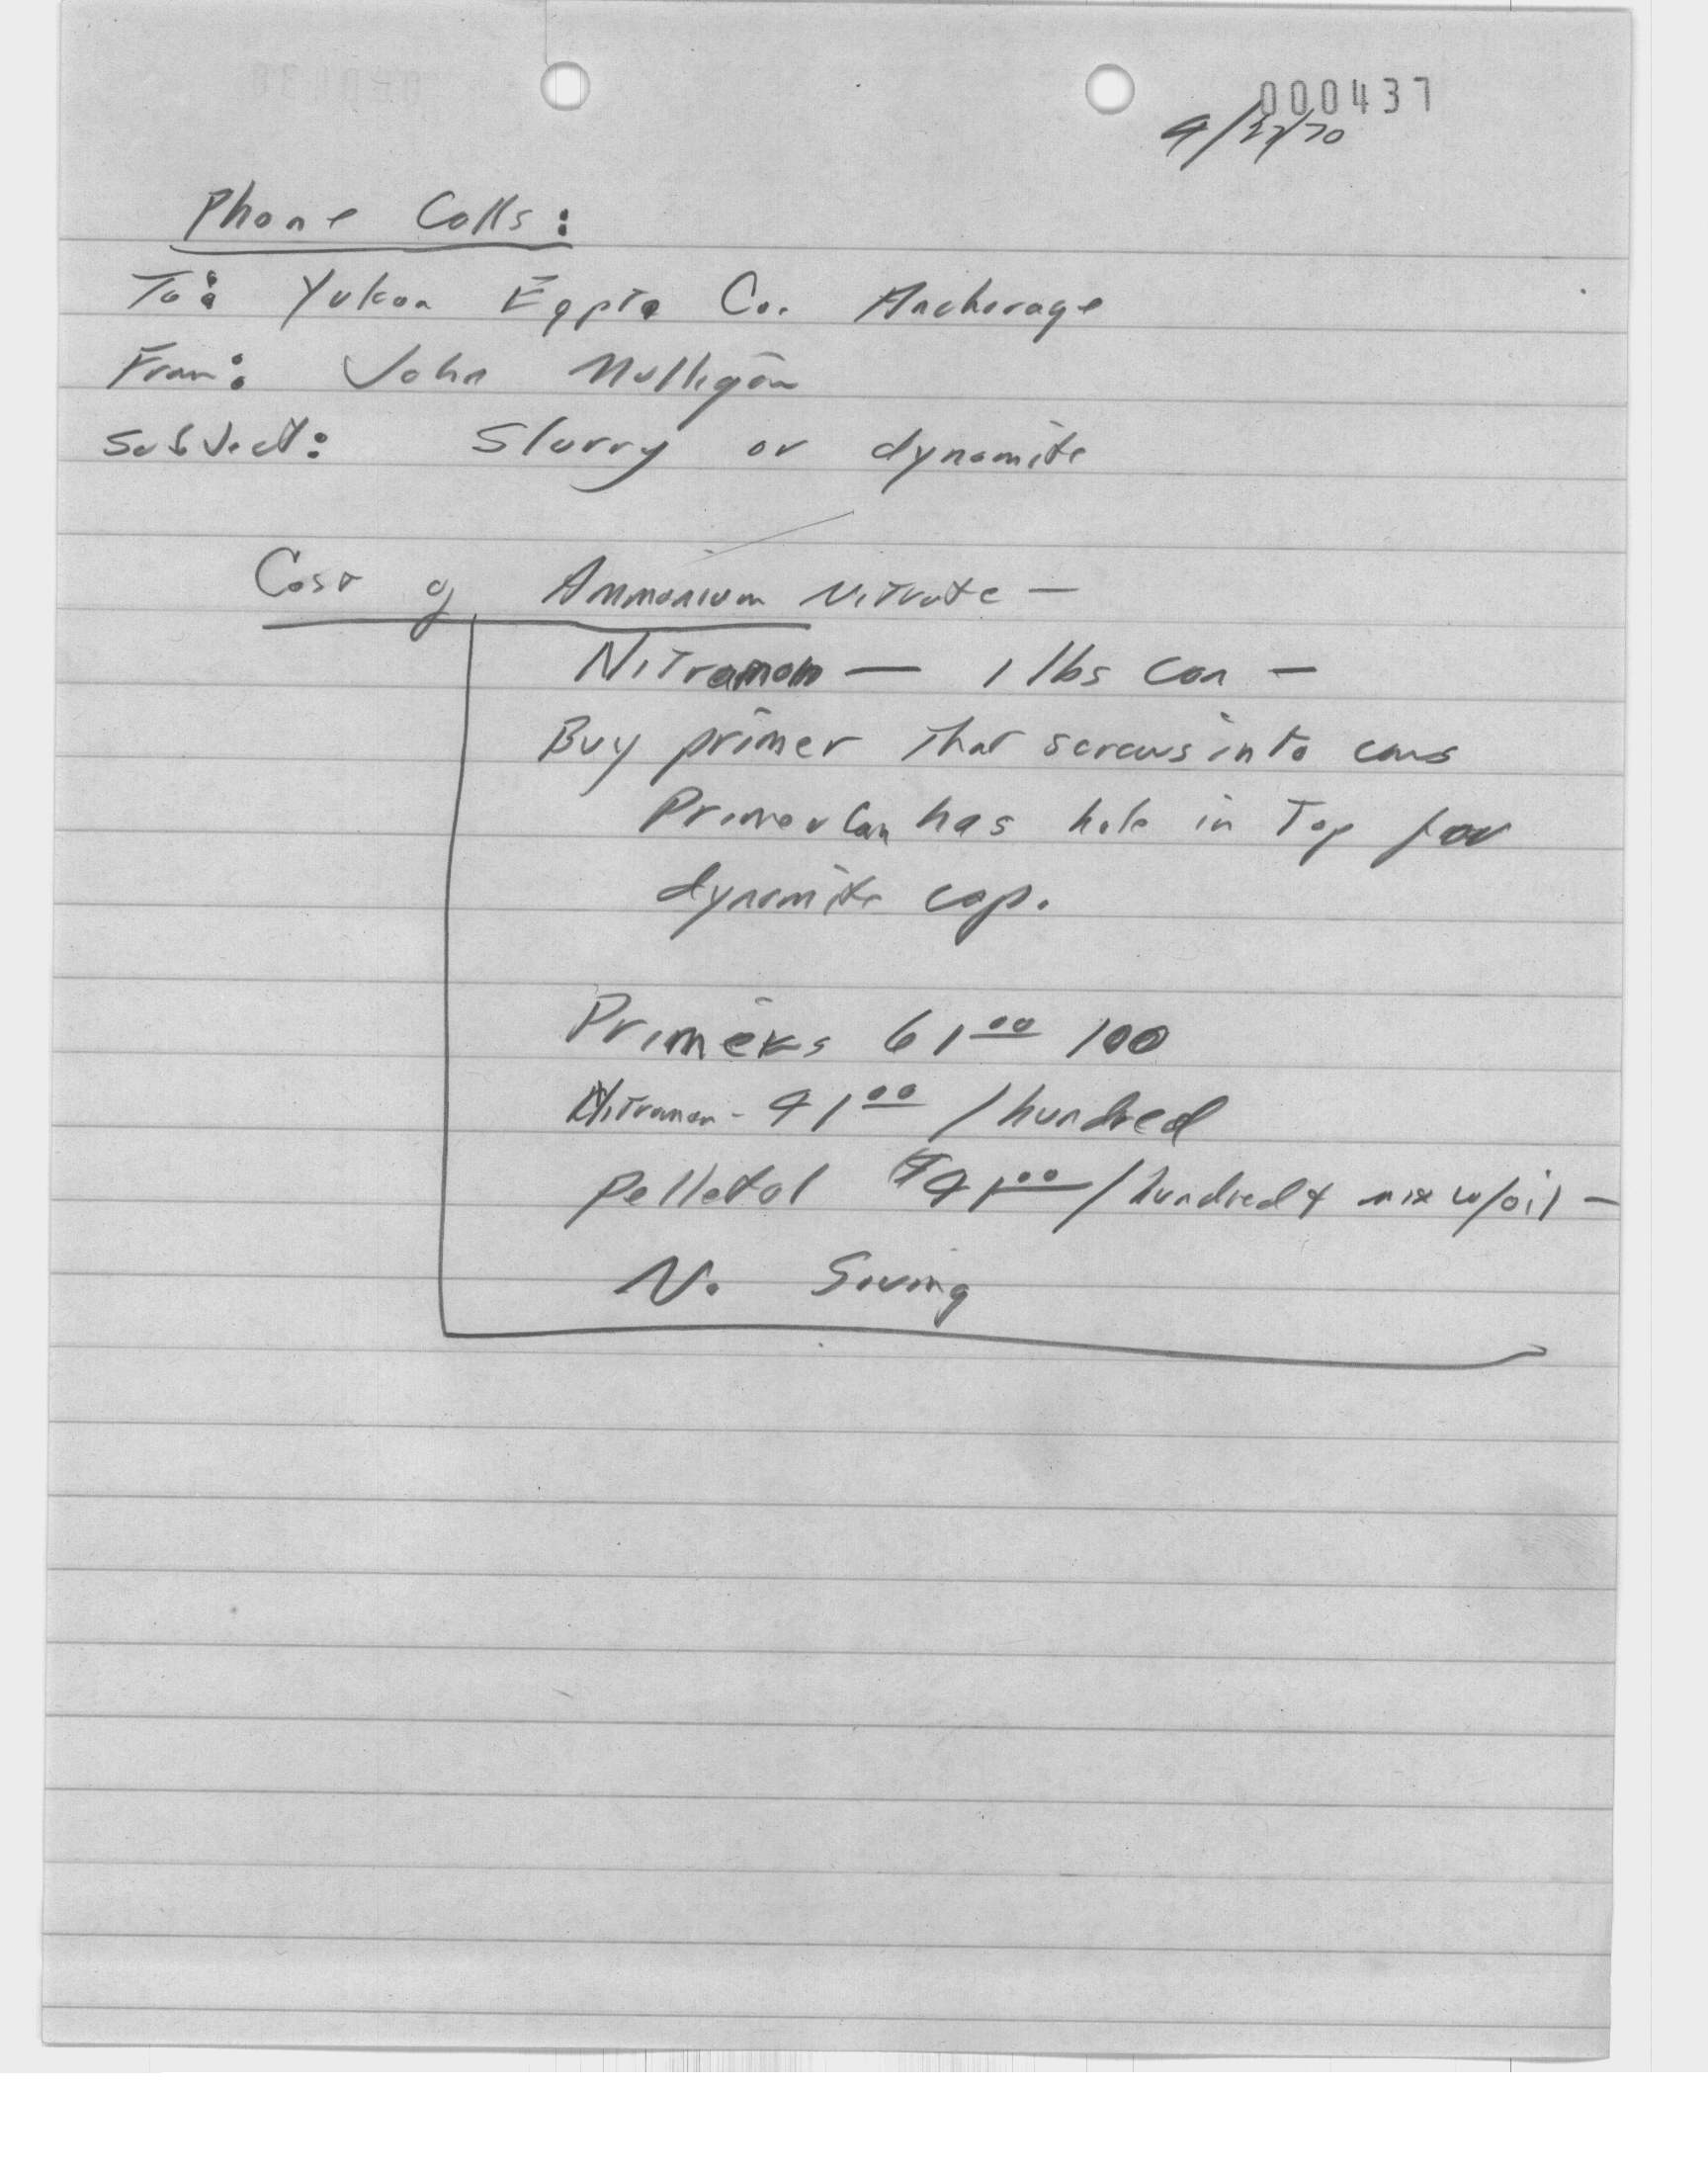 000437
Phone Calls:
To: Yukon Eqpt. Co. Anchorage
From: John Mulligan
Subject: Slurry or dynamite
Cost of Ammonium Nitrate —
Nitramon — 1 lbs can —
Buy primer that screws into cans
Primer Can has hole in Top for
dynamite cap.
Primers 61 00 100
Nitramon - 41 00 / hundred
Pelletol $41 00 / hundred & mix w/oil —
No Saving